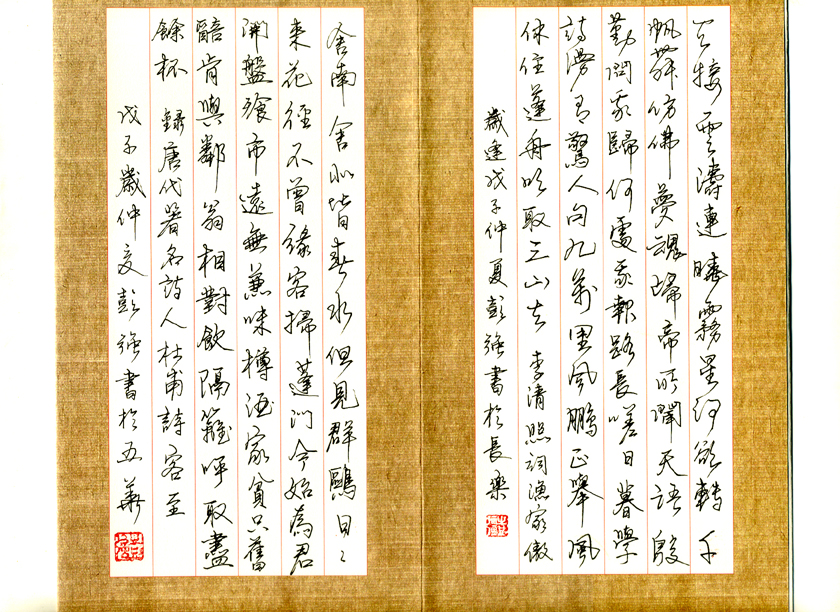 天接雲濤連曉霧星河欲轉千
帆舞仿佛夢魂歸帝所聞天語殷
勤問我歸何處我報路長嗟日暮學
詩漫有驚人句九萬里風鵬正舉風
休住蓬舟吹取三山去 李清照詞漁家傲
歲逢戊子仲夏彭强書於長樂
舍南舍北皆春水但見群鷗日〻
來花徑不曾緣客掃蓬門今始為君
開盤飧市遠無兼味樽酒家貧只舊
醅肯與鄰翁相對飲隔籬呼取盡
餘杯 錄唐代著名詩人杜甫詩客至
戊子歲仲夏彭强書於五華